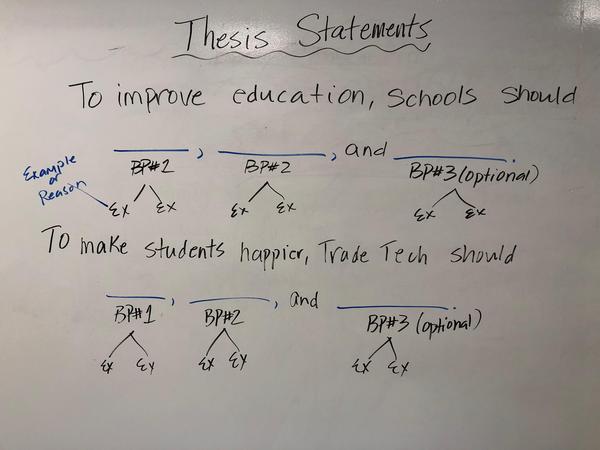 Thesis Statements
To improve education, schools should
, , and .
BP#1 BP#2 BP#3 (optional)
Example
or
Reason
Ex Ex Ex Ex Ex Ex
To make students happier, Trade Tech should
, , and .
BP#1 BP#2 BP#3 (optional)
Ex Ex Ex Ex Ex Ex